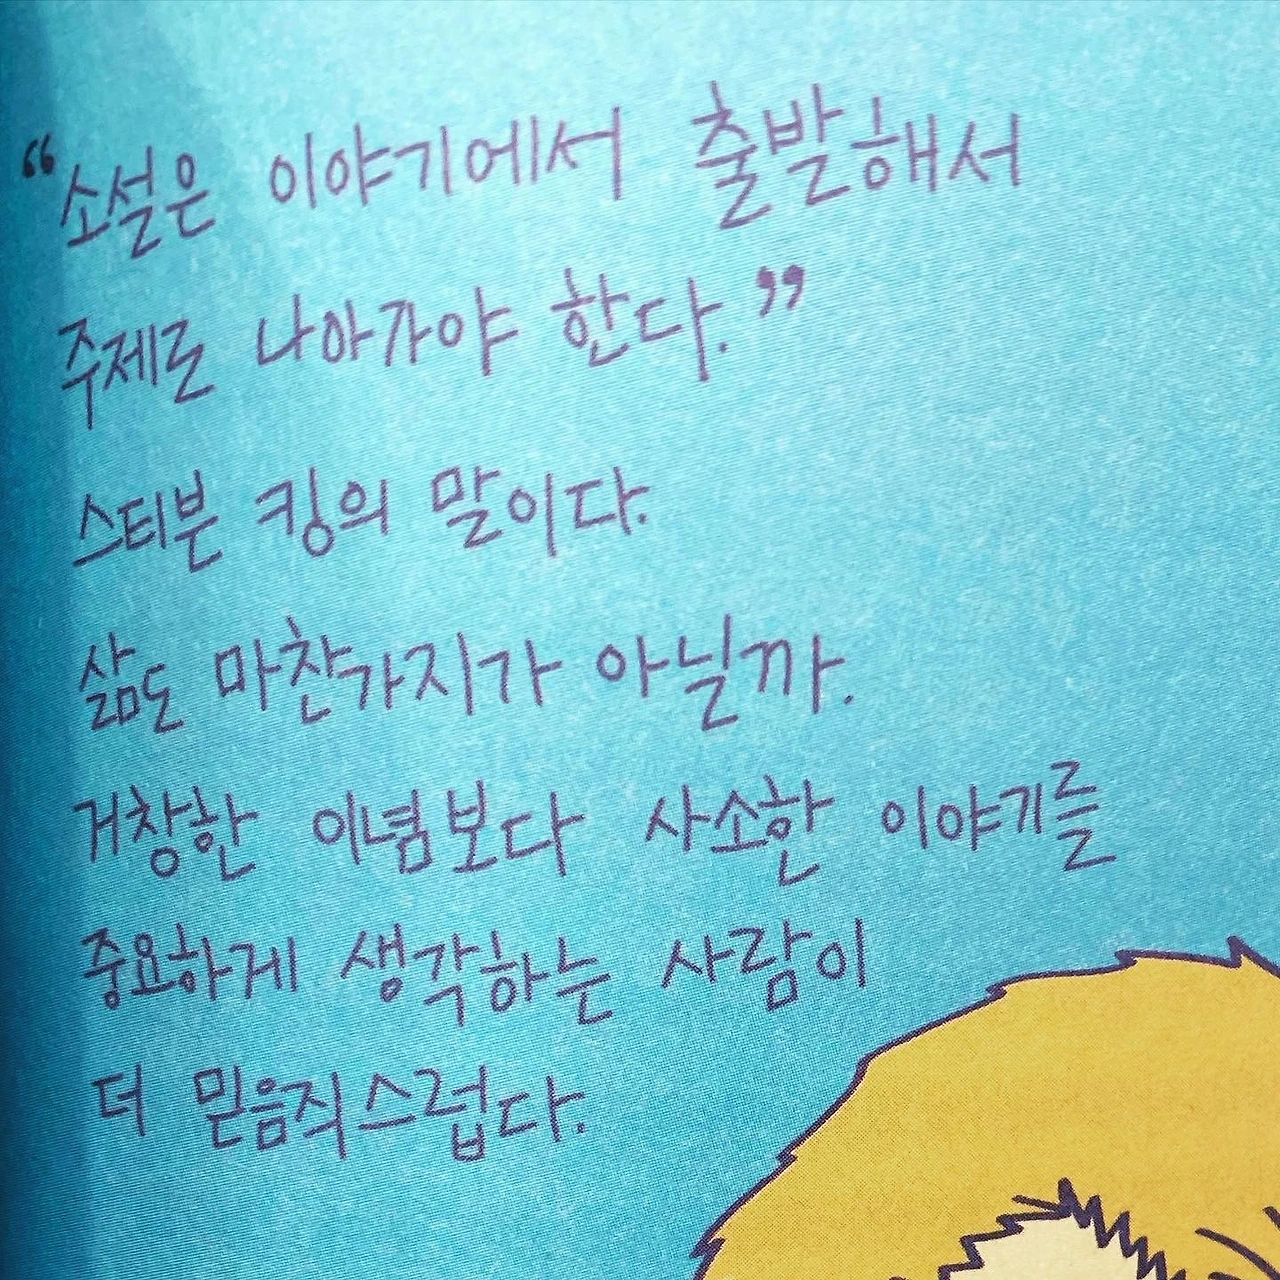 “소설은 이야기에서 출발해서
주제로 나아가야 한다.”
스티븐 킹의 말이다.
삶도 마찬가지가 아닐까.
거창한 이념보다 사소한 이야기를
중요하게 생각하는 사람이
더 믿음직스럽다.